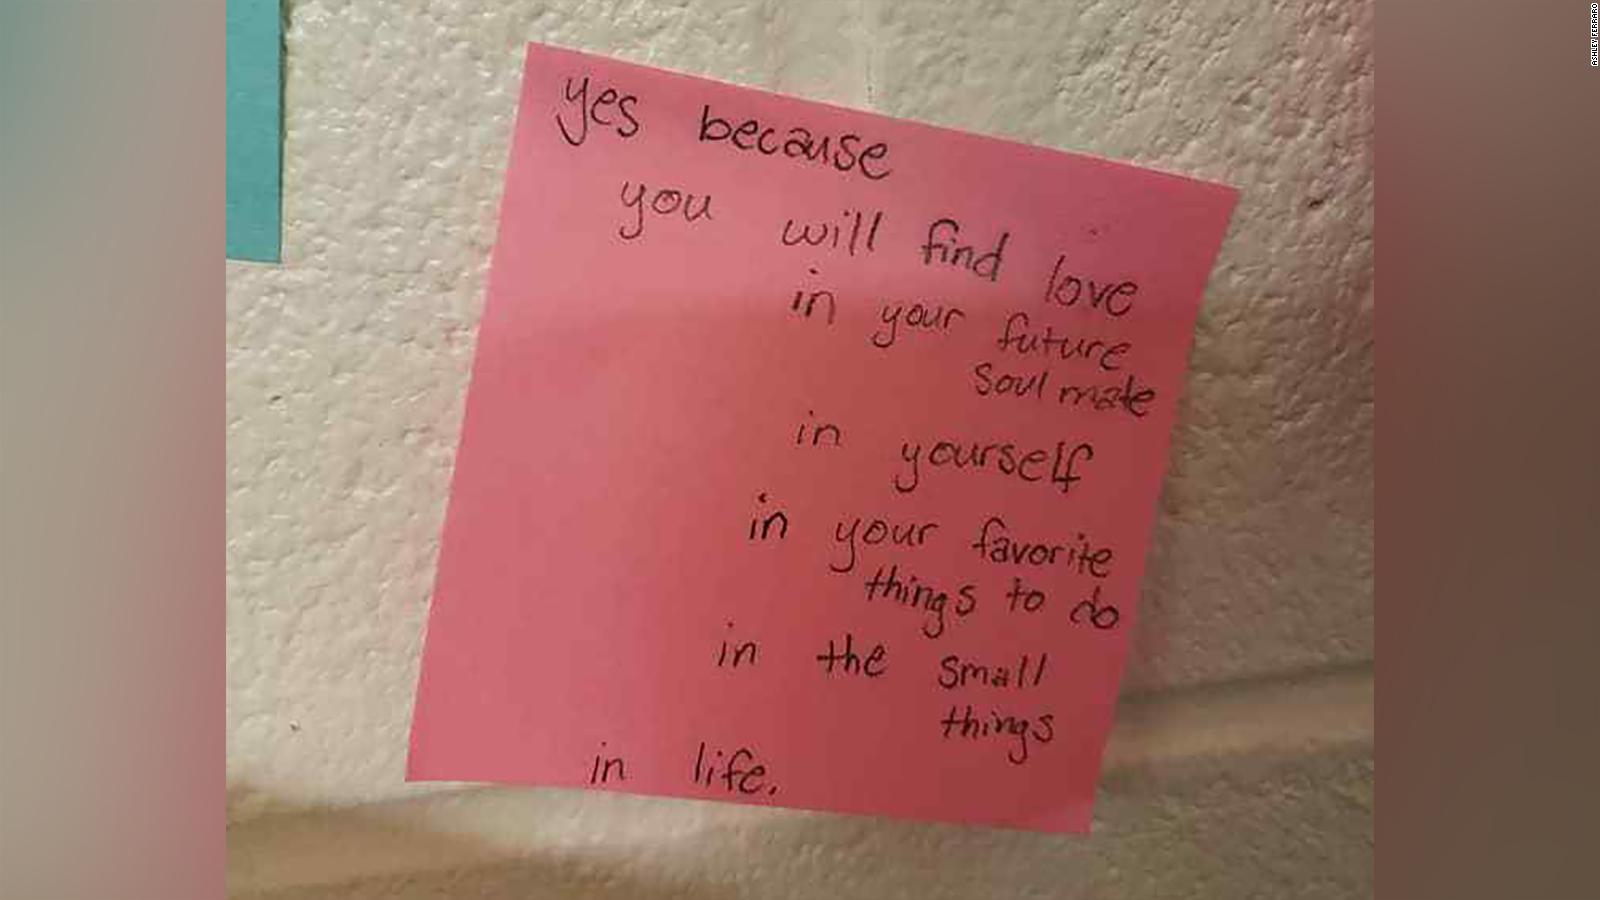 yes because
you will find love
in your future
soulmate
in yourself
in your favorite
things to do
in the small
things
in life.
ASHLEY FERRARO